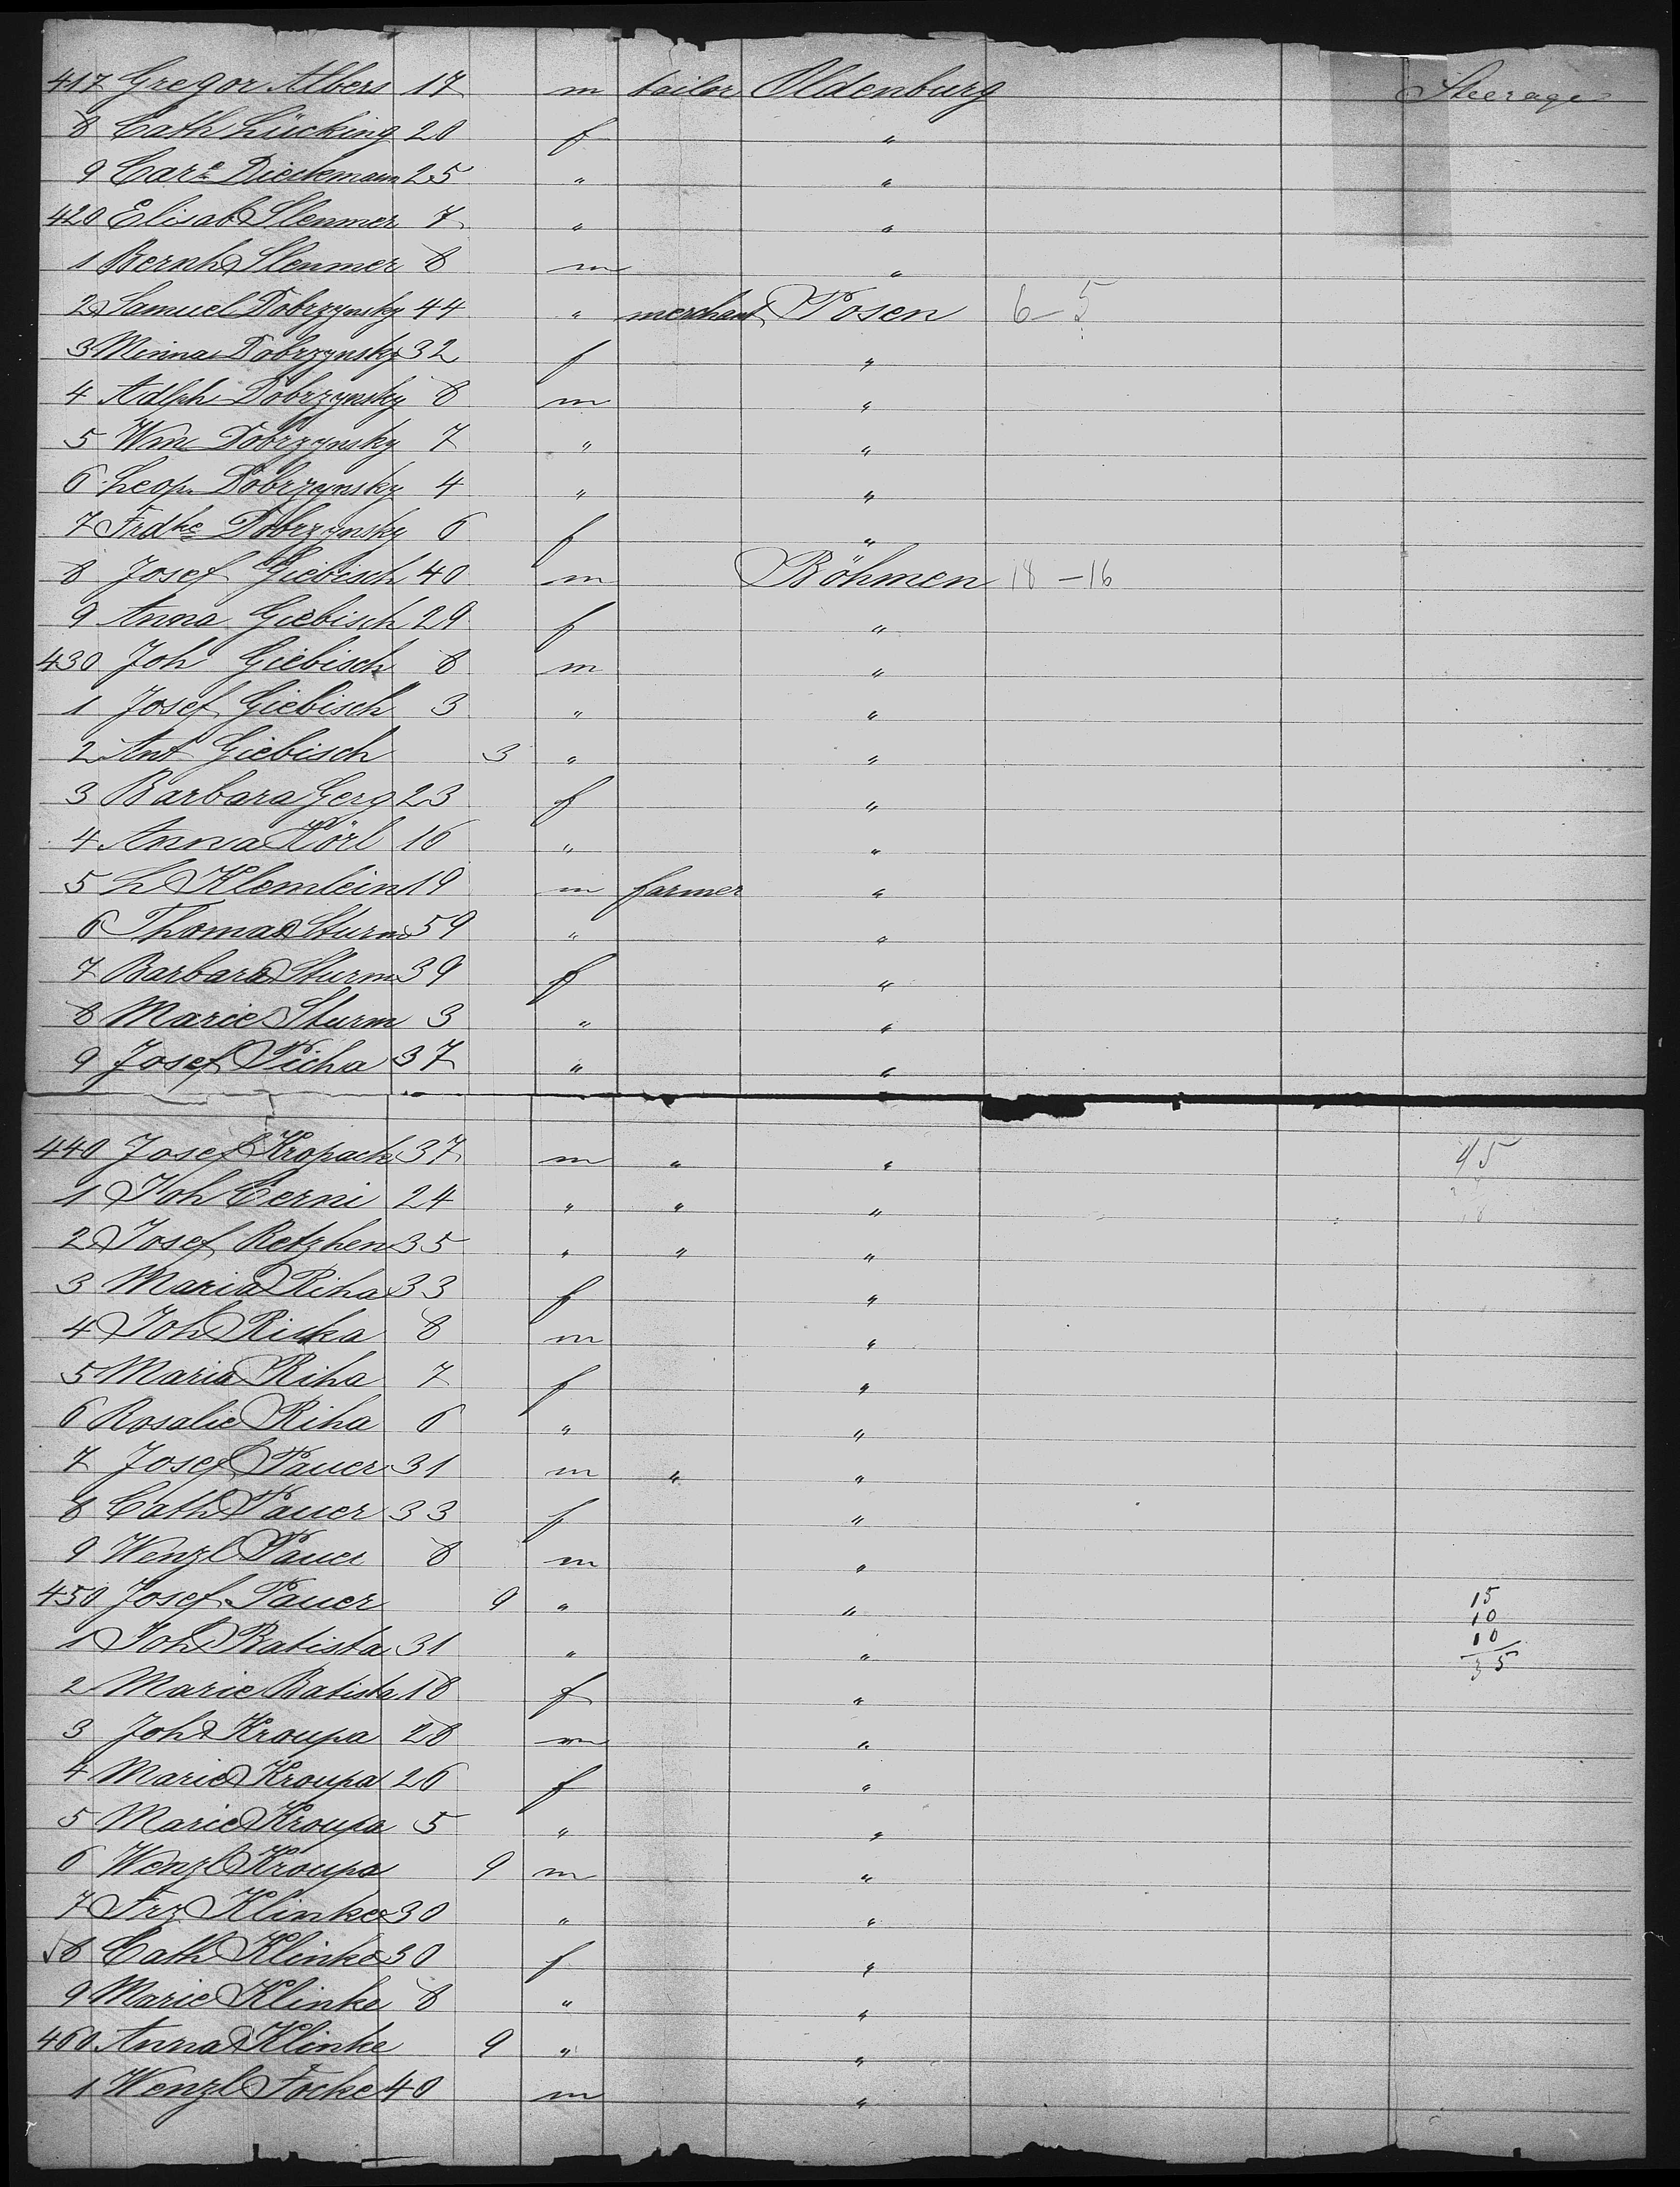 417 Gregor Albers 17 m tailor Oldenburg Steerage
8 Cath Lücking 20 f "
9 Care Dieckmann 25 " "
420 Elisab Slenmer 7 " "
1 Bernh Slenmer 8 m "
2 Samuel Dobrzynsky 44 " merchant Posen 6-5
3 Minna Dobrzynsky 32 f "
4 Adlph Dobrzynsky 8 m "
5 Wm Dobrzynsky 7 " "
6 Leop. Dobrzynsky 4 " "
7 Frdke Dobrzynsky 6 f "
8 Josef Giebisch 40 m Böhmen 18-16
9 Anna Giebisch 29 f "
430 Joh Giebisch 8 m "
1 Josef Giebisch 3 " "
2 Ant Giebisch 3 " "
3 Barbara Gerg 23 f "
4 Anna Hörl 16 " "
5 L Klemlein 19 m farmer "
6 Thomas Sturm 59 " "
7 Barbara Sturm 39 f "
8 Marie Sturm 3 " "
9 Josef Picha 37 " "
440 Josef Kropach 37 m " " 45
1 Joh Cerni 24 " " "
2 Josef Retzhen 35 " " "
3 Maria Riha 33 f "
4 Joh Riska 8 m "
5 Maria Riha 7 f "
6 Rosalie Riha 6 " "
7 Josef Pauer 31 m " "
8 Cath Pauer 33 f "
9 Wenzl Pauer 8 m "
450 Josef Pauer 9 " " 15
10
1 Joh Batista 31 " " 10
35
2 Marie Batista 18 f "
3 Joh Kroupa 28 m "
4 Marie Kroupa 26 f "
5 Marie Kroupa 5 " "
6 Wenzl Kroupa 9 m "
7 Frz Klinke 30 " "
8 Cath Klinke 30 f "
9 Marie Klinke 8 " "
460 Anna Klinke 9 " "
1 Wenzl Focke 40 m "